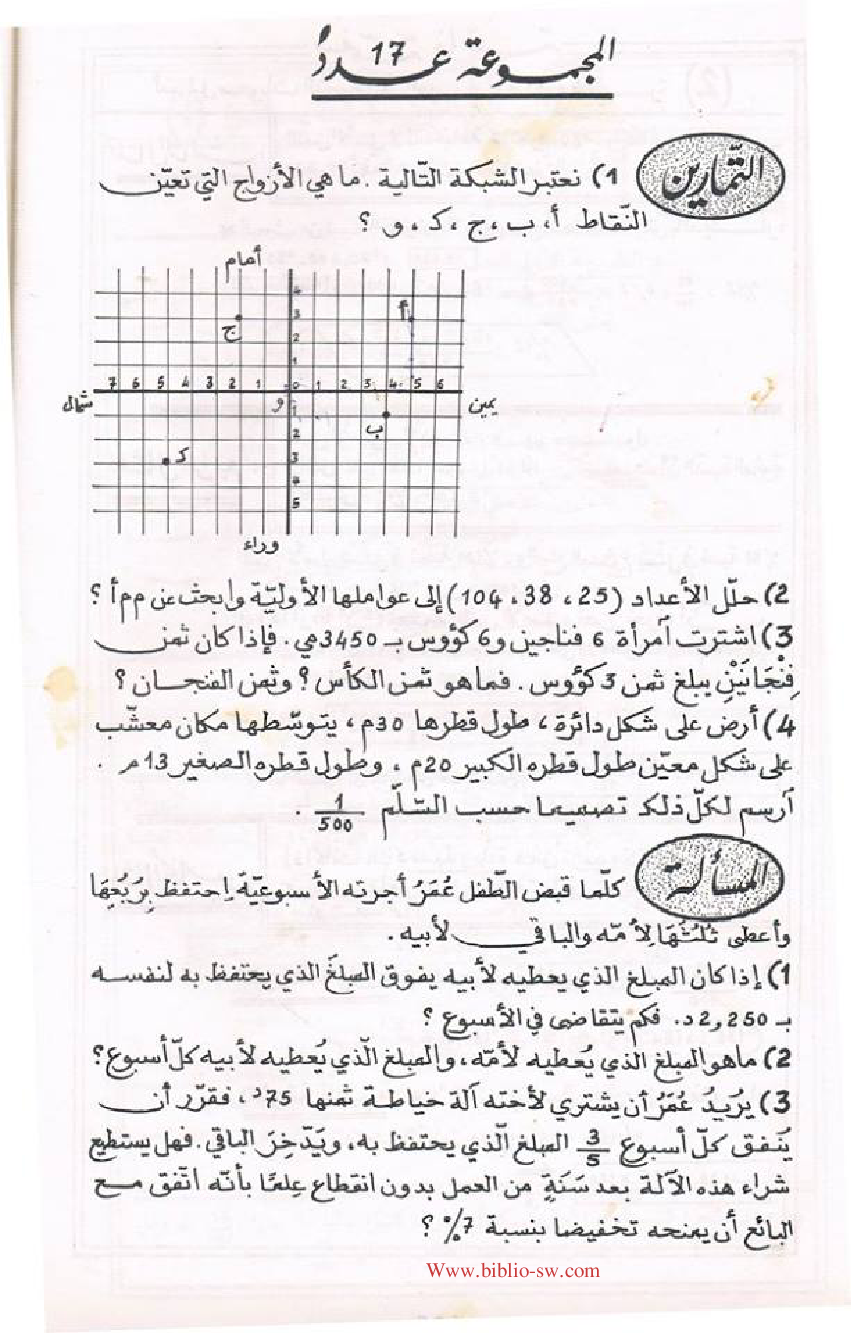 المجموعة عدد 17
التّمارين
1) نعتبر الشبكة التّالية . ما هي الأزواج التي تعيّن
النّقاط أ، ب، ج، ك، و ؟
أمام
4
3
2
1
أ
ج
7 6 5 4 3 2 1 0 1 2 3 4 5 6
شمال
يمين
و
1
2
3
4
5
ب
ك
وراء
2) حلّل الأعداد (25 ، 38 ، 104) إلى عواملها الأوليّة وابحث عن م م أ ؟
3) اشترت آمرأة 6 فناجين و6 كؤوس بـ 3450مي. فإذا كان ثمن
فِنْجَانَيْنِ يبلغ ثمن 3 كؤوس . فما هو ثمن الكأس ؟ وثمن الفنجان ؟
4) أرض على شكل دائرة ، طول قطرها 30م ، يتوسّطها مكان معشّب
على شكل معيّن طول قطره الكبير 20م ، وطول قطره الصغير 13م .
آرسم لكلّ ذلك تصميما حسب السّلّم 1/500 .
المسألة
كلّما قبض الطّفل عُمَرُ أجرته الأسبوعيّة اِحتفظ بِرُبُعِهَا
وأعطى ثُلُثَهَا لِأمّه والباقي لأبيه .
1) إذا كان المبلغ الذي يعطيه لأبيه يفوق المبلغَ الذي يحتفظ به لنفسه
بـ 2,250د. فكم يتقاضى في الأسبوع ؟
2) ما هو المبلغ الذي يُعطيه لأمّه، والمبلغ الّذي يُعطيه لأبيه كلّ أسبوع؟
3) يُرِيدُ عُمَرُ أن يشتري لأخته آلة خياطة ثمنها 75د، فقرّر أن
يُنفق كلّ أسبوع 3/5 المبلغ الّذي يحتفظ به، ويدّخِرَ الباقي . فهل يستطيع
شراء هذه الآلة بعد سَنَةٍ من العمل بدون انقطاع عِلمًا بأنّه اتّفق مع
البائع أن يمنحه تخفيضا بنسبة 7% ؟
Www.biblio-sw.com